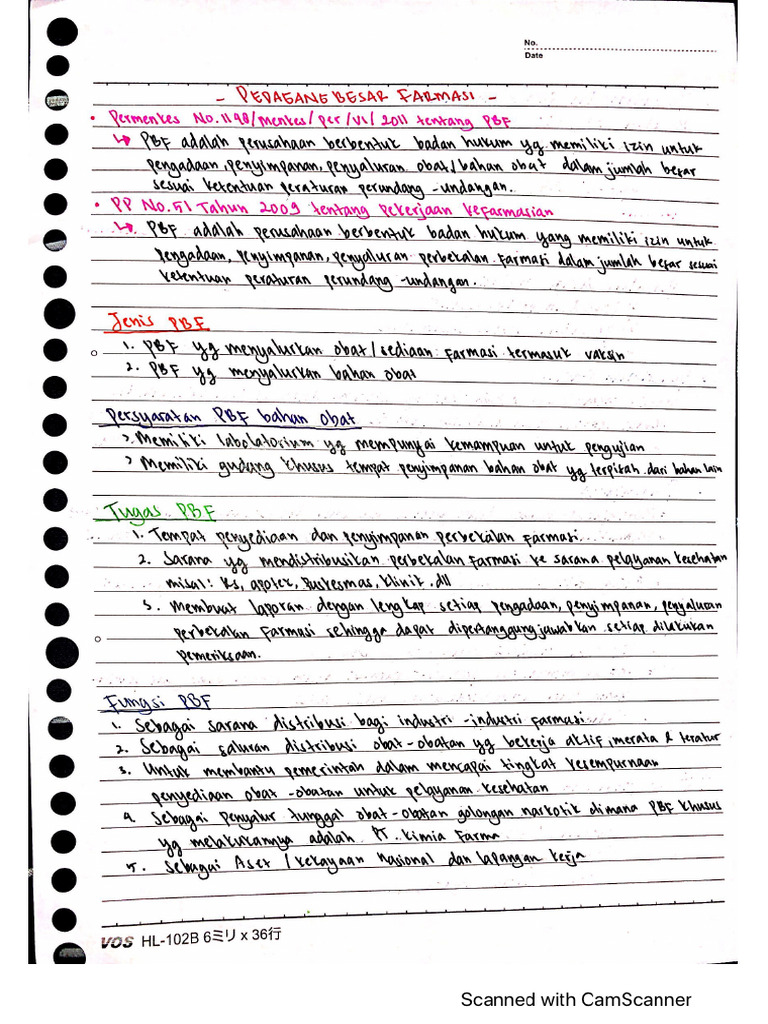 No.
Date
- PEDAGANG BESAR FARMASI -
• Permenkes No. 1148/menkes/per/VI/2011 tentang PBF
↳ PBF adalah perusahaan berbentuk badan hukum yg memiliki izin untuk
pengadaan, penyimpanan, penyaluran obat/bahan obat dalam jumlah besar
sesuai ketentuan peraturan perundang-undangan.
• PP No.51 Tahun 2009 tentang pekerjaan kefarmasian
↳ PBF adalah perusahaan berbentuk badan hukum yang memiliki izin untuk
pengadaan, penyimpanan, penyaluran perbekalan farmasi dalam jumlah besar sesuai
ketentuan peraturan perundang-undangan.
Jenis PBF
1. PBF yg menyalurkan obat/sediaan farmasi termasuk vaksin
2. PBF yg menyalurkan bahan obat
Persyaratan PBF bahan obat
> Memiliki labolatorium yg mempunyai kemampuan untuk pengujian
> Memiliki gudang khusus tempat penyimpanan bahan obat yg terpisah dari bahan lain
Tugas PBF
1. Tempat penyediaan dan penyimpanan perbekalan farmasi.
2. Sarana yg mendistribusikan perbekalan farmasi ke sarana pelayanan kesehatan
misal: RS, apotek, Puskesmas, klinik, dll
3. Membuat laporan dengan lengkap setiap pengadaan, penyimpanan, penyaluran
perbekalan farmasi sehingga dapat dipertanggungjawabkan setiap dilakukan
pemeriksaan.
Fungsi PBF
1. Sebagai sarana distribusi bagi industri-industri farmasi
2. Sebagai saluran distribusi obat-obatan yg bekerja aktif, merata & teratur
3. Untuk membantu pemerintah dalam mencapai tingkat kesempurnaan
penyediaan obat-obatan untuk pelayanan kesehatan
4. Sebagai penyalur tunggal obat-obatan golongan narkotik dimana PBF khusus
yg melakukannya adalah PT. Kimia Farma
5. Sebagai Aset / kekayaan Nasional dan lapangan kerja
VOS HL-102B 6ミリ x 36行
Scanned with CamScanner